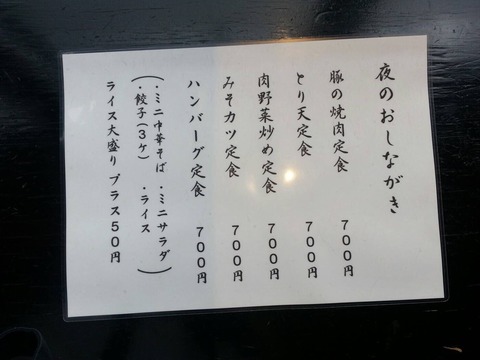 夜のおしながき
豚の焼肉定食 700円
とり天定食 700円
肉野菜炒め定食 700円
みそカツ定食 700円
ハンバーグ定食 700円
(・ミニ中華そば ・ミニサラダ
・餃子(3ケ) ・ライス)
ライス大盛り プラス50円